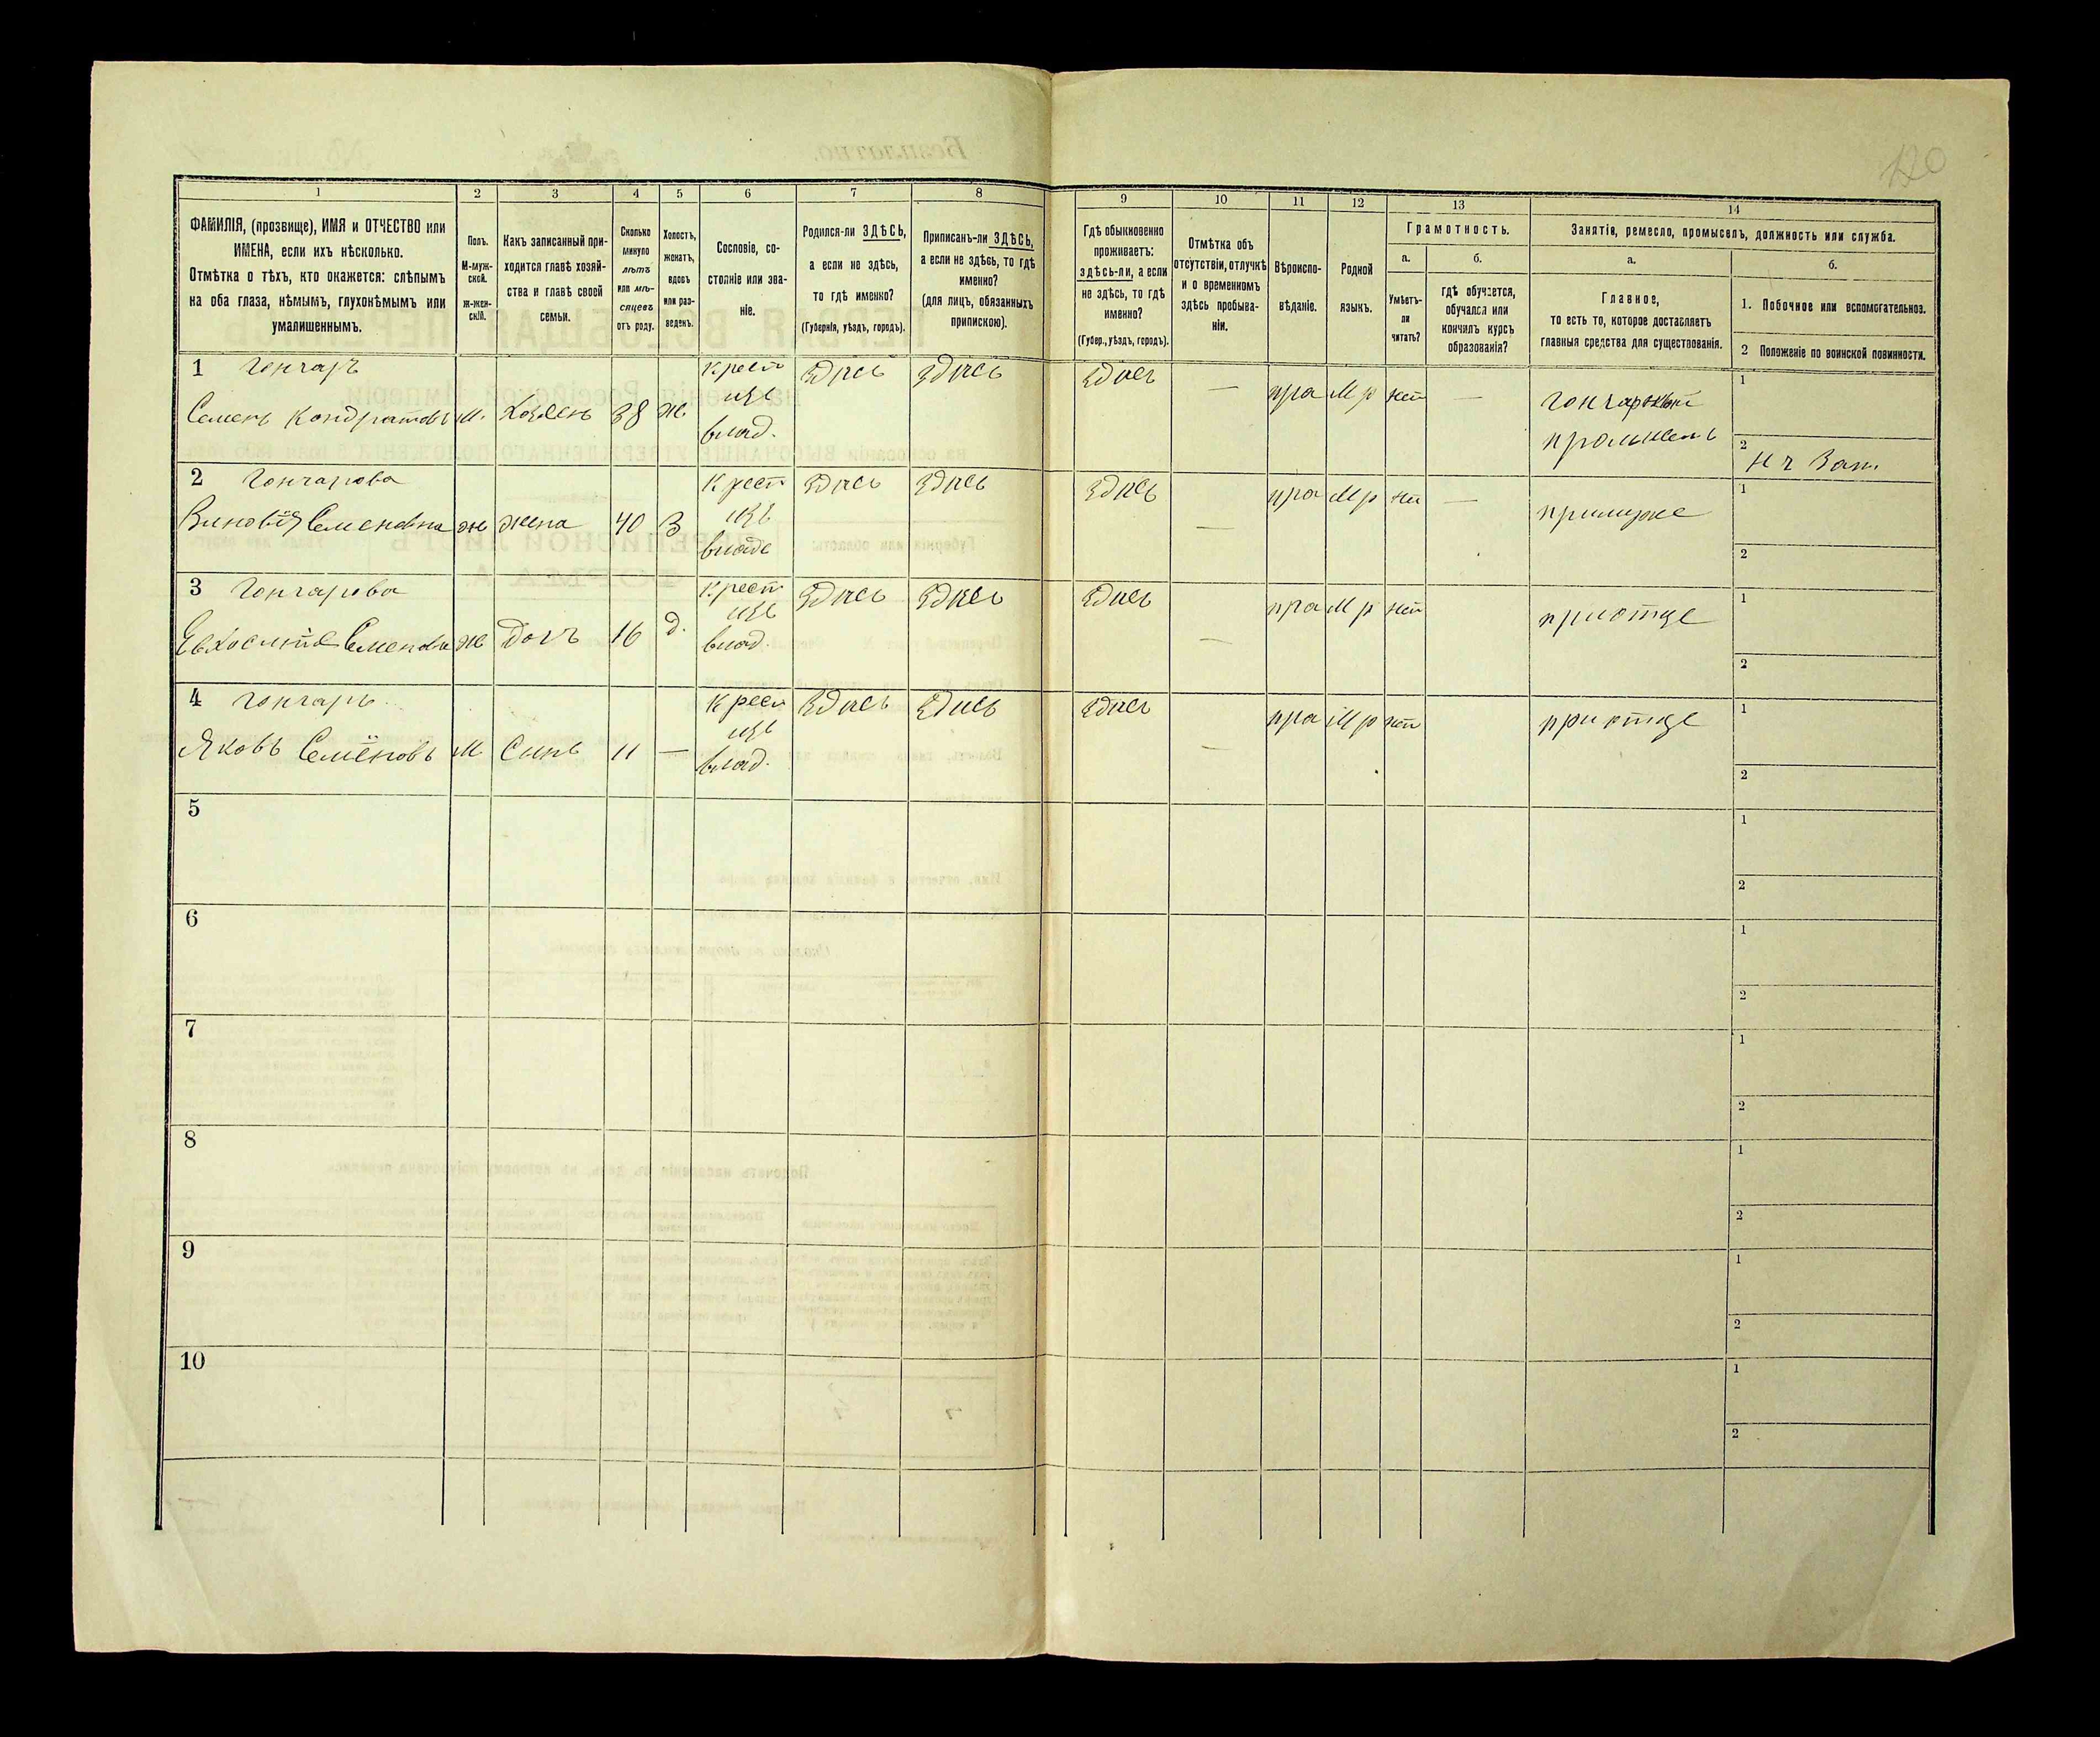 120
1 2 3 4 5 6 7 8 9 10 11 12 13 14
ФАМИЛІЯ, (прозвище), ИМЯ и ОТЧЕСТВО или
ИМЕНА, если ихъ нѣсколько.
Отмѣтка о тѣхъ, кто окажется: слѣпымъ
на оба глаза, нѣмымъ, глухонѣмымъ или
умалишеннымъ.
Полъ.
М-муж-
ской.
ж-жен-
скій.
Какъ записанный при-
ходится главѣ хозяй-
ства и главѣ своей
семьи.
Сколько
минуло
лѣтъ
или мѣ-
сяцевъ
отъ роду.
Холостъ,
женатъ,
вдовъ
или раз-
веденъ.
Сословіе, со-
стояніе или зва-
ніе.
Родился-ли ЗДѢСЬ,
а если не здѣсь,
то гдѣ именно?
(Губернія, уѣздъ, городъ).
Приписанъ-ли ЗДѢСЬ,
а если не здѣсь, то гдѣ
именно?
(для лицъ, обязанныхъ
припискою).
Гдѣ обыкновенно
проживаетъ:
здѣсь-ли, а если
не здѣсь, то гдѣ
именно?
(Губер., уѣздъ, городъ).
Отмѣтка объ
отсутствіи, отлучкѣ
и о временномъ
здѣсь пребыва-
ніи.
Вѣроиспо-
вѣданіе.
Родной
языкъ.
Грамотность.
а.
Умѣетъ-
ли
читать?
б.
гдѣ обучается,
обучался или
кончилъ курсъ
образованія?
Занятіе, ремесло, промыселъ, должность или служба.
а.
Главное,
то есть то, которое доставляетъ
главныя средства для существованія.
б.
1. Побочное или вспомогательное.
2 Положеніе по воинской повинности.
1 Гончаръ
Семенъ Кондратовъ м. Хозяенъ 38 ж.
Крест
изъ
влад.
Здѣсь Здѣсь Здѣсь — пра М р нѣт —
промысел
1
2
2 Гончарова
Семеновна ж жена 40 З
Крест
изъ
владе
Здѣсь Здѣсь Здѣсь — пра М р нѣт —
примуже
1
2
3 Гончарова
Семенова ж дочъ 16 д.
Крест
изъ
влад.
Здѣсь Здѣсь Здѣсь — пра М р нѣт
приотце
1
2
4 Гончаръ
Яковъ Семёновъ М Синъ 11 —
Крест
изъ
влад.
Здѣсь Здѣсь Здѣсь — пра М р нѣт
приотце
1
2
5 1
2
6 1
2
7 1
2
8 1
2
9 1
2
10 1
2